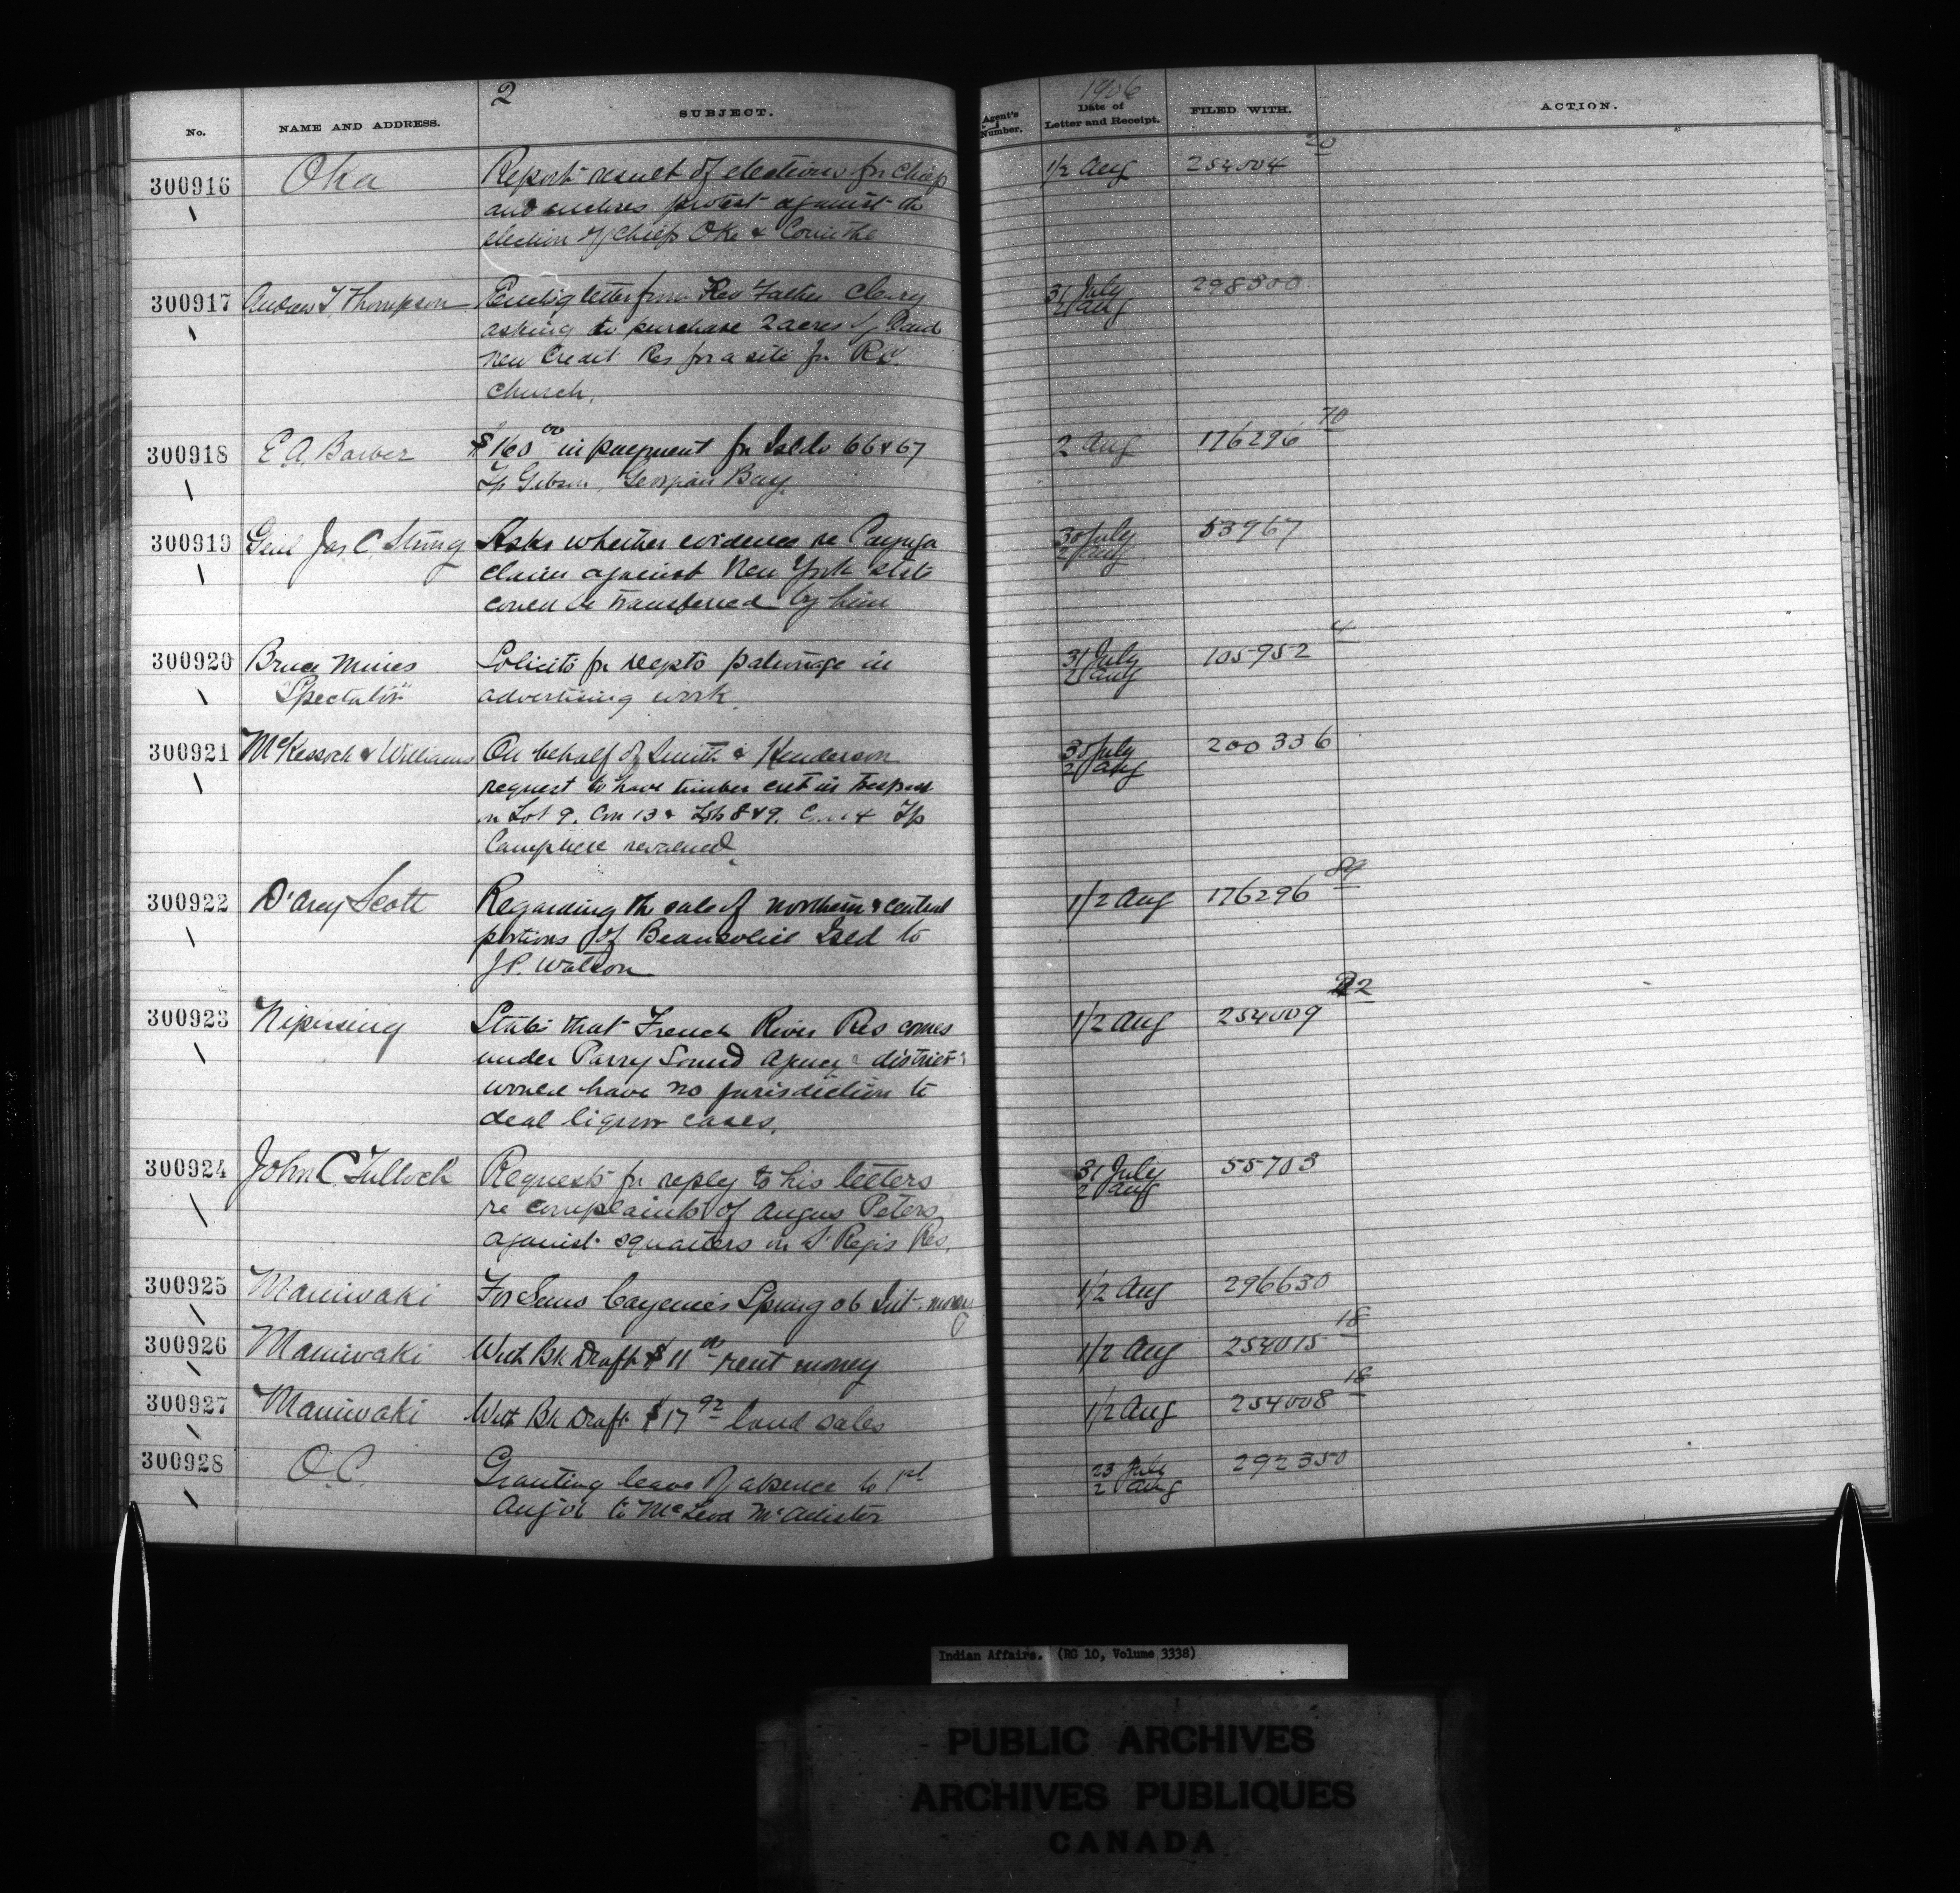 2
1906
No.
NAME AND ADDRESS.
SUBJECT.
Agent's Number.
Date of Letter and Receipt.
FILED WITH.
ACTION.
300916 Oka Report result of elections for Chief 1/2 Aug 254004 20
and encloses protest against the
election of Chiefs Oke & Corinthe
300917 Andrew T. Thompson Enclo'g letter from Rev Father Cleary 31 July 298500
asking to purchase 2 acres of land 2 Aug
New Credit Res for a site for R.C.
Church.
300918 E.A. Barber $160 00 in payment for Islds 66 & 67 2 Aug 176296 70
Tp Gibson, Georgian Bay.
300919 Genl Jas. C. Strong Asks whether evidence re Cayuga 30 July 53967
claim against New York state 2 Aug
could be transferred by him
300920 Bruce Mines Solicits for Depts patronage in 31 July 105952 4
"Spectator" advertising work. 2 Aug
300921 McKessock & Williams On behalf of Smith & Henderson 30 July 200336
request to have timber cut in trespass 2 Aug
on Lot 9. Con 13 & Lots 8 & 9. Con 14 Tp
300922 D'Arcy Scott Regarding the sale of northern & central 1/2 Aug 176296 89
portions of Beausoliel Isld to
J.P. Watson
300923 Nipissing States that French River Res comes 1/2 Aug 254009 22
under Parry Sound Agency & district
would have no jurisdiction to
deal liquor cases.
300924 John C. Tulloch Requests for reply to his letters 31 July 55703
re complaints of Angus Peters 2 Aug
against squatters on St Regis Res.
300925 Maniwaki For Spring 06 Int. money 1/2 Aug 296630
300926 Maniwaki With Bk Draft $11 00 rent money 1/2 Aug 254015 18
300927 Maniwaki With Bk Draft $17 92 land sales 1/2 Aug 254008 18
300928 O.C. Granting leave of absence to 1st 23 July 292350
Aug 06 to McLeod McAllister 2 Aug
Indian Affairs. (RG 10, Volume 3338)
PUBLIC ARCHIVES
ARCHIVES PUBLIQUES
CANADA